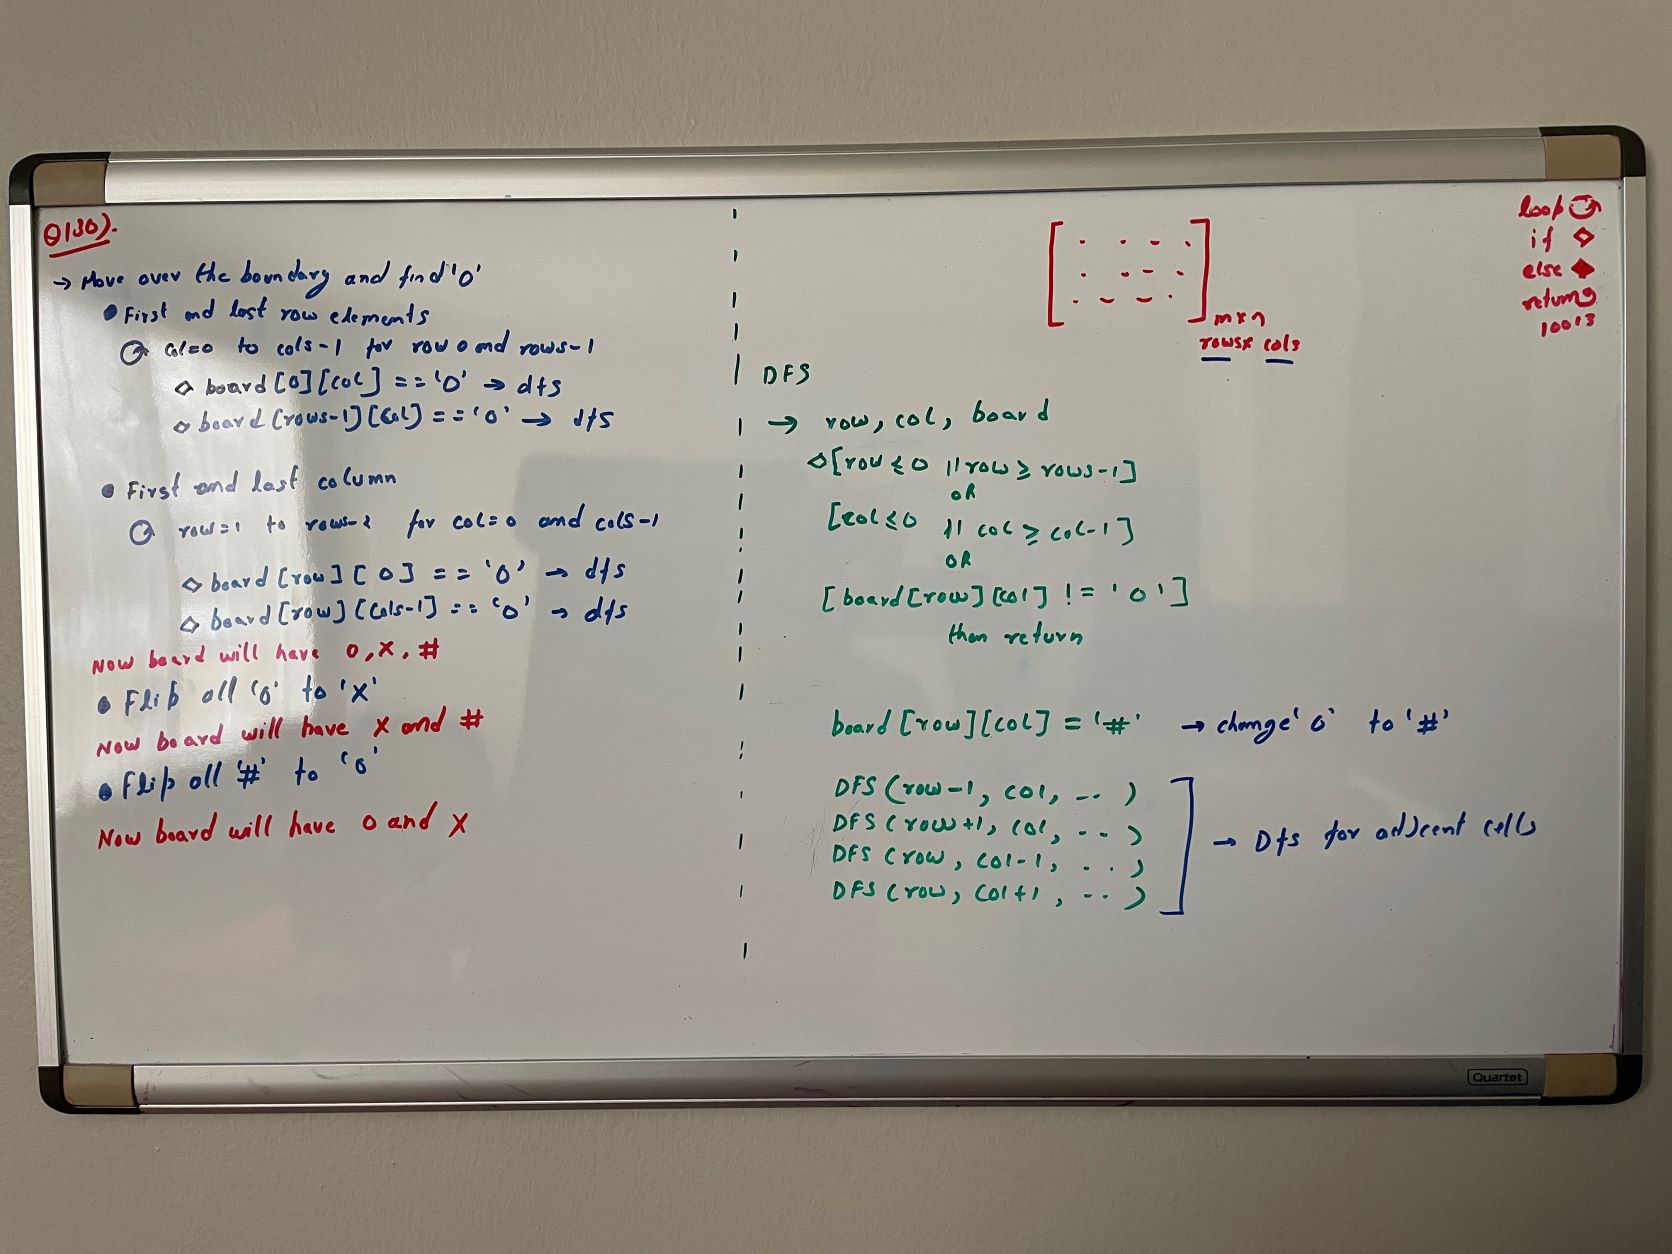 Q130).
→ Move over the boundary and find 'O'
• First and last row elements
col=0 to cols-1 for row 0 and rows-1
◇ board[0][col] == 'O' → dfs
◇ board[rows-1][col] == 'O' → dfs
• First and last column
row=1 to rows-2 for col=0 and cols-1
◇ board[row][0] == 'O' → dfs
◇ board[row][cols-1] == 'O' → dfs
Now board will have O, X, #
• Flip all 'O' to 'X'
Now board will have X and #
• Flip all '#' to 'O'
Now board will have O and X
m x n
rows x cols
DFS
→ row, col, board
◇[row ≤ 0 || row ≥ rows-1]
OR
[col ≤ 0 || col ≥ col-1]
OR
[board[row][col] != 'O']
then return
board[row][col] = '#' → change 'O' to '#'
DFS(row-1, col, -- )
DFS(row+1, col, -- )
DFS(row, col-1, .. )
DFS(row, col+1, -- )
→ Dfs for adjcent cells
loop
if ◇
else ◆
return
Quartet